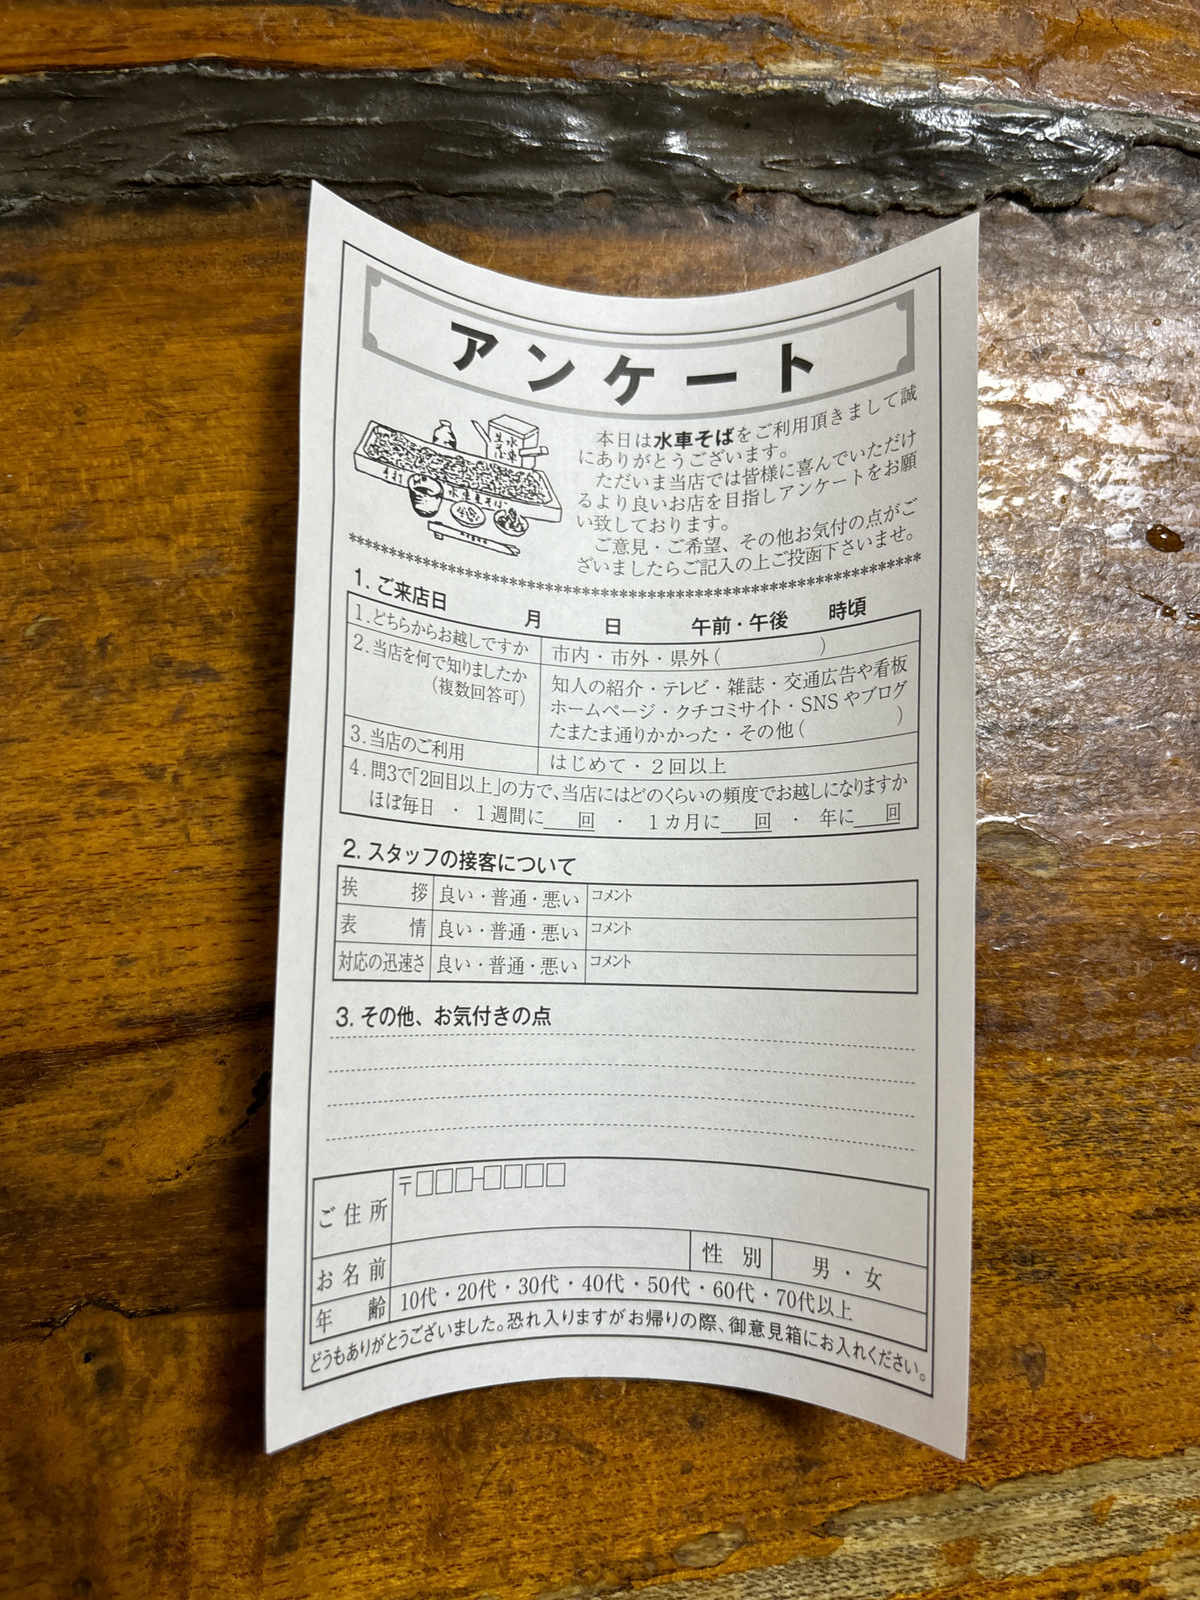 アンケート
本日は水車そばをご利用頂きまして誠
にありがとうございます。
ただいま当店では皆様に喜んでいただけ
るより良いお店を目指しアンケートをお願
い致しております。
ご意見・ご希望、その他お気付の点がご
ざいましたらご記入の上ご投函下さいませ。
水車
生そば
手打
水車生そば
1. ご来店日 月 日 午前・午後 時頃
1. どちらからお越しですか 市内・市外・県外( )
2. 当店を何で知りましたか
(複数回答可)
知人の紹介・テレビ・雑誌・交通広告や看板
ホームページ・クチコミサイト・SNSやブログ
たまたま通りかかった・その他( )
3. 当店のご利用 はじめて・2回以上
4. 問3で「2回目以上」の方で、当店にはどのくらいの頻度でお越しになりますか
ほぼ毎日 ・ 1週間に 回 ・ 1カ月に 回 ・ 年に 回
2. スタッフの接客について
挨拶 良い・普通・悪い コメント
表情 良い・普通・悪い コメント
対応の迅速さ 良い・普通・悪い コメント
3. その他、お気付きの点
ご住所 〒□□□-□□□□
お名前 性別 男・女
年齢 10代・20代・30代・40代・50代・60代・70代以上
どうもありがとうございました。恐れ入りますがお帰りの際、御意見箱にお入れください。